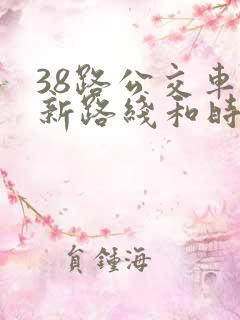 38路公交車
新路綫和時
負鍾海